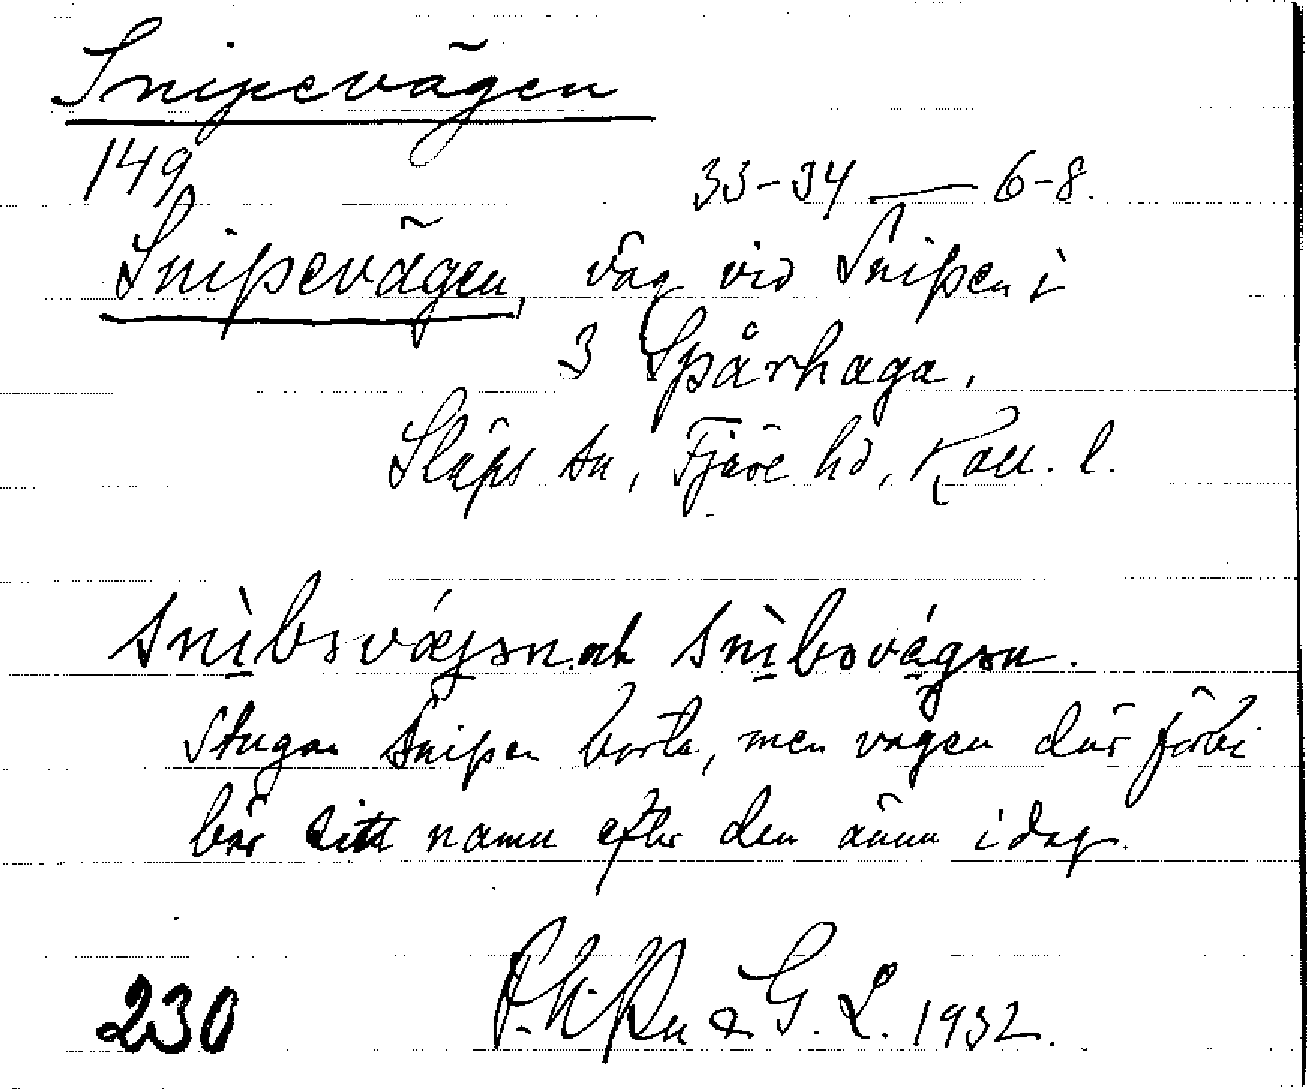 Snipevägen
149
33-34 — 6-8.
Snipevägen, väg vid Snipen i
3 Spårhaga.
Släps sn, Fjäre hd, Hall. l.
snìbəvǽgən. och snìbəvágən.
Stugan Snipen borta, men vägen där förbi
bär sitt namn efter den ännu i dag.
& G. L. 1932.
230